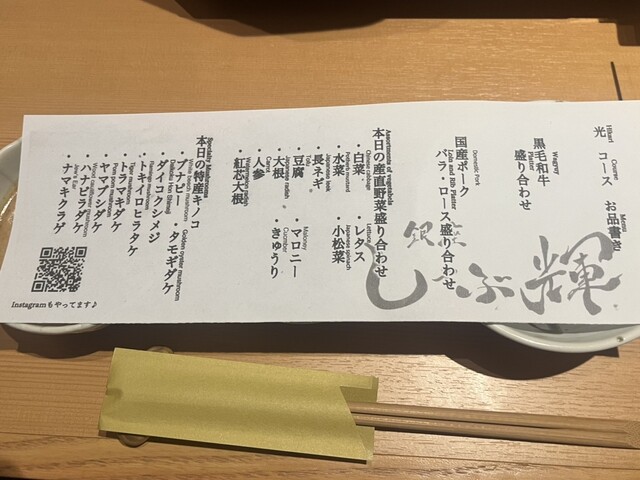 Hikari Course Menu
光 コース お品書き
Wagyu
Plate
黒毛和牛
盛り合わせ
Domestic Pork
Loin and Rib Platter
国産ポーク
バラ・ロース盛り合わせ
Assortments of vegetable
本日の産直野菜盛り合わせ
Chinese cabbage
・白菜
Lettuce
・レタス
・水菜
Japanese spinach
・小松菜
Japanese leek
・長ネギ
Tofu
・豆腐
Malony
・マロニー
Japanese radish
・大根
Cucumber
・きゅうり
Carrot
・人参
Watermelon radish
・紅芯大根
Specialty Mushrooms
本日の特産キノコ
White beech mushroom
・ブナピー
Golden oyster mushroom
・タモギダケ
Daikoku Hon Shimeji
・ダイコクシメジ
Flamingo mushroom
・トキイロヒラタケ
Tiger mushroom
・トラマキダケ
・ヤマブシダケ
・ハナビラダケ
Jew's Ear
・ナマキクラゲ
銀座
しゃぶ輝
Instagramもやってます♪